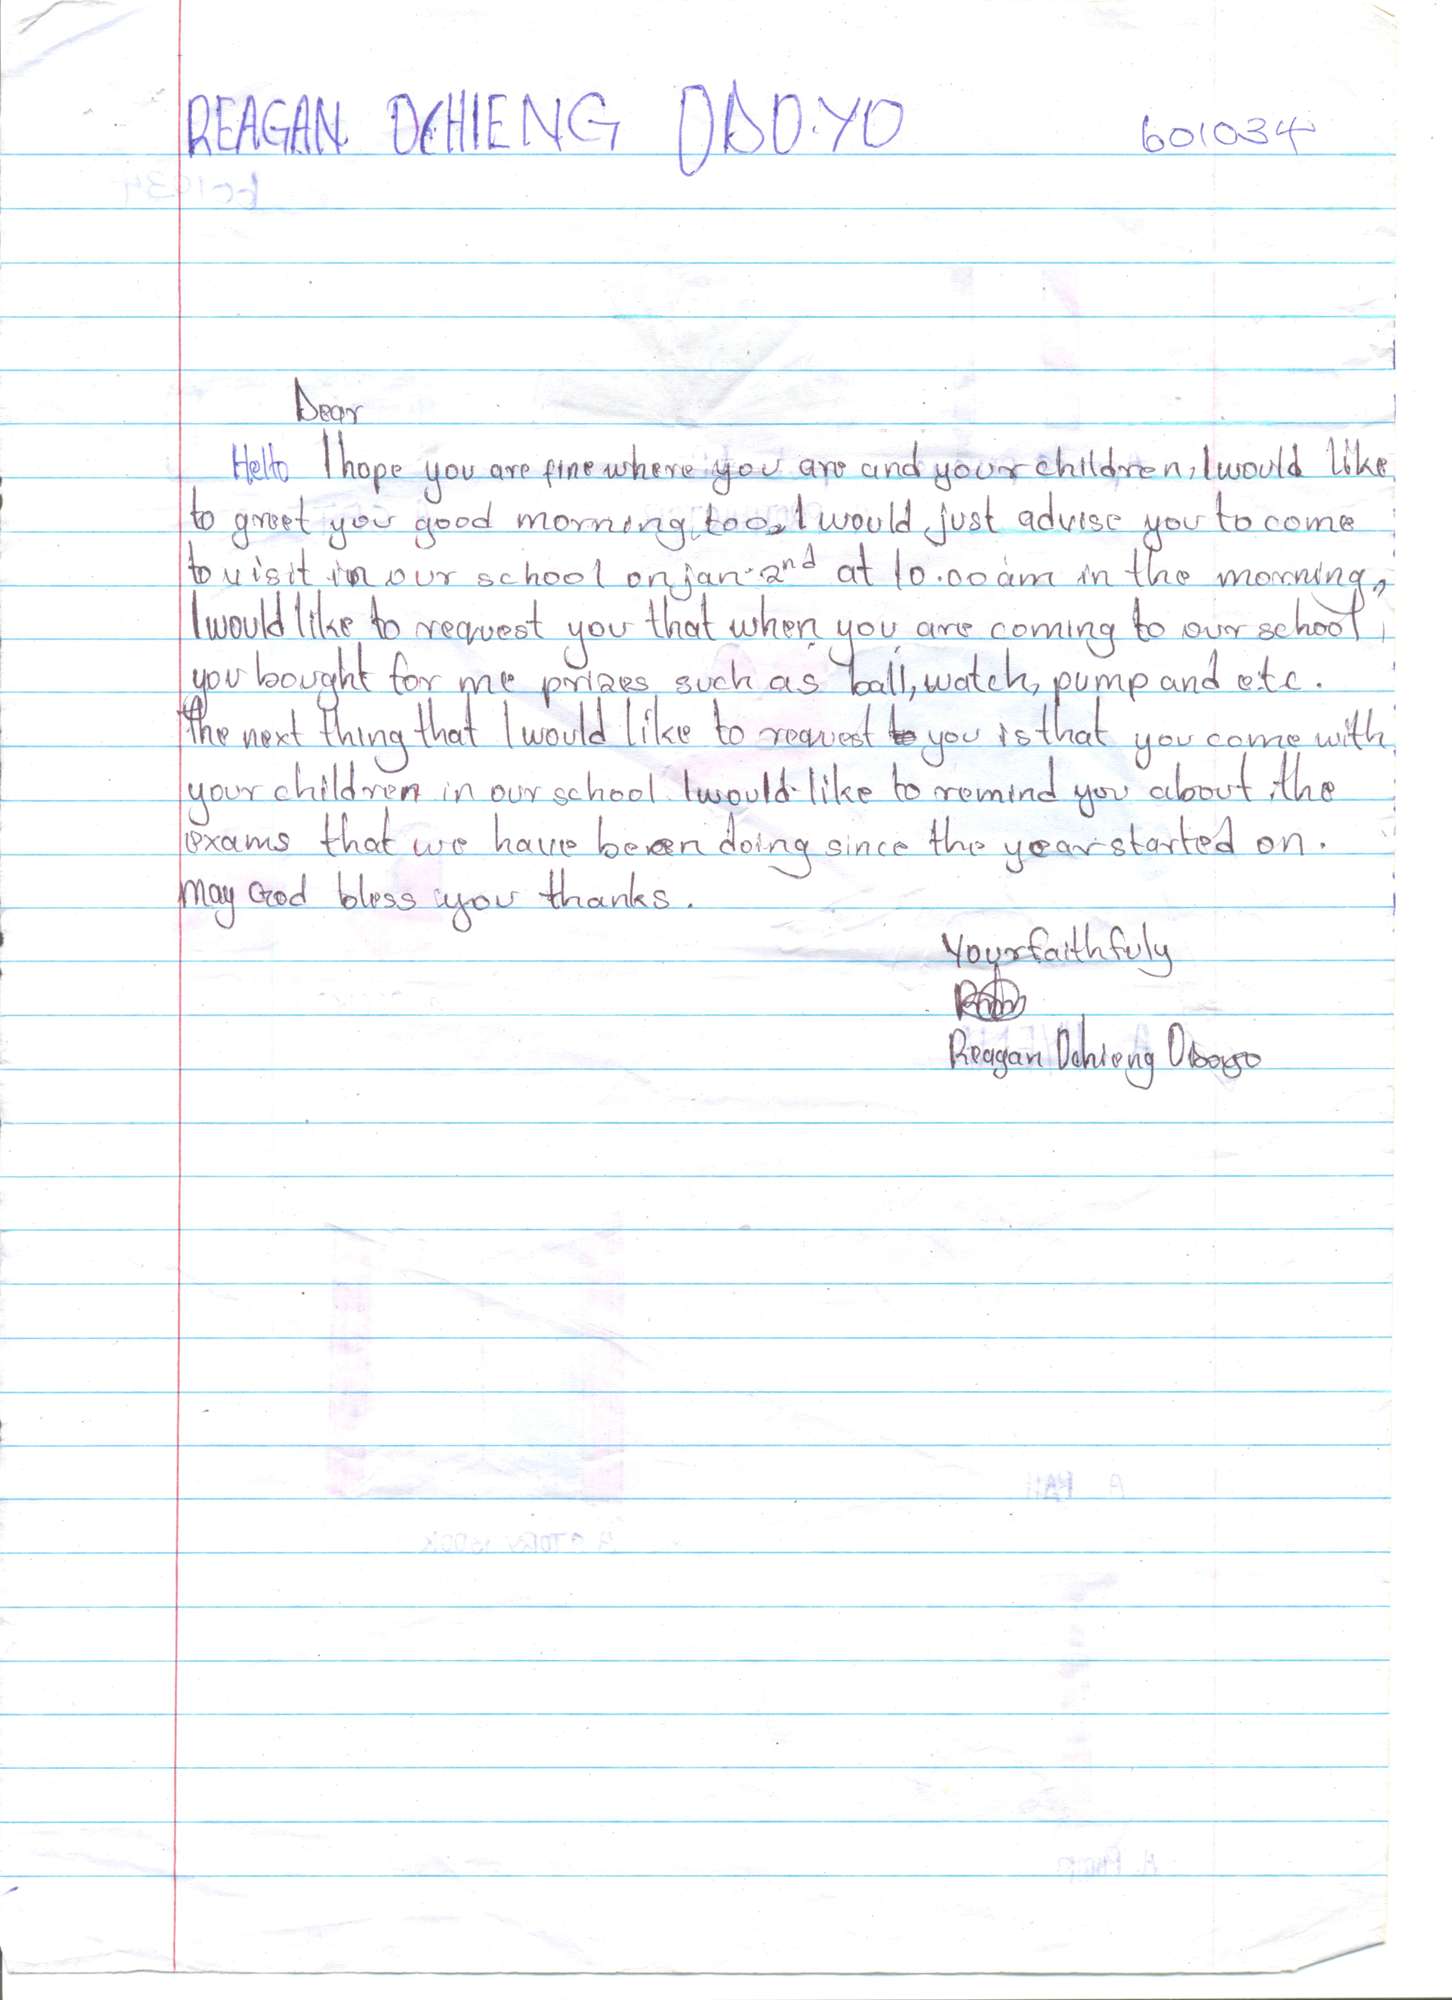 REAGAN OCHIENG OBOYO 601034
Dear
Hello I hope you are fine where you are and your children, I would like
to greet you good morning too, I would just advise you to come
to visit in our school on jan. 2nd at 10.00am in the morning,
I would like to request you that when you are coming to our school,
you bought for me prizes such as ball, watch, pump and e.t.c.
The next thing that I would like to request to you is that you come with
your children in our school. I would like to remind you about the
exams that we have been doing since the year started on.
May God bless you thanks.
Yourfaithfuly
Reagan Ochieng Oboyo